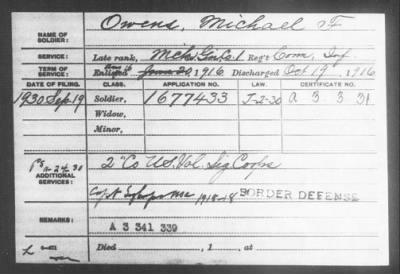 NAME OF SOLDIER: Owens, Michael F
SERVICE: Late rank, Reg't Com, Inf
TERM OF SERVICE: Enlisted June 20, 1916 Discharged Oct 19, 1916
DATE OF FILING. CLASS. APPLICATION NO. LAW. CERTIFICATE NO.
1930 Sep 19 Soldier, 1677433 J-2-30 A 3 3 31
Widow,
Minor,
ADDITIONAL SERVICES: 2" Co U.S. Vol. Sig Corps
1918-18 BORDER DEFENSE
REMARKS: A 3 341 339
Died , 1 , at